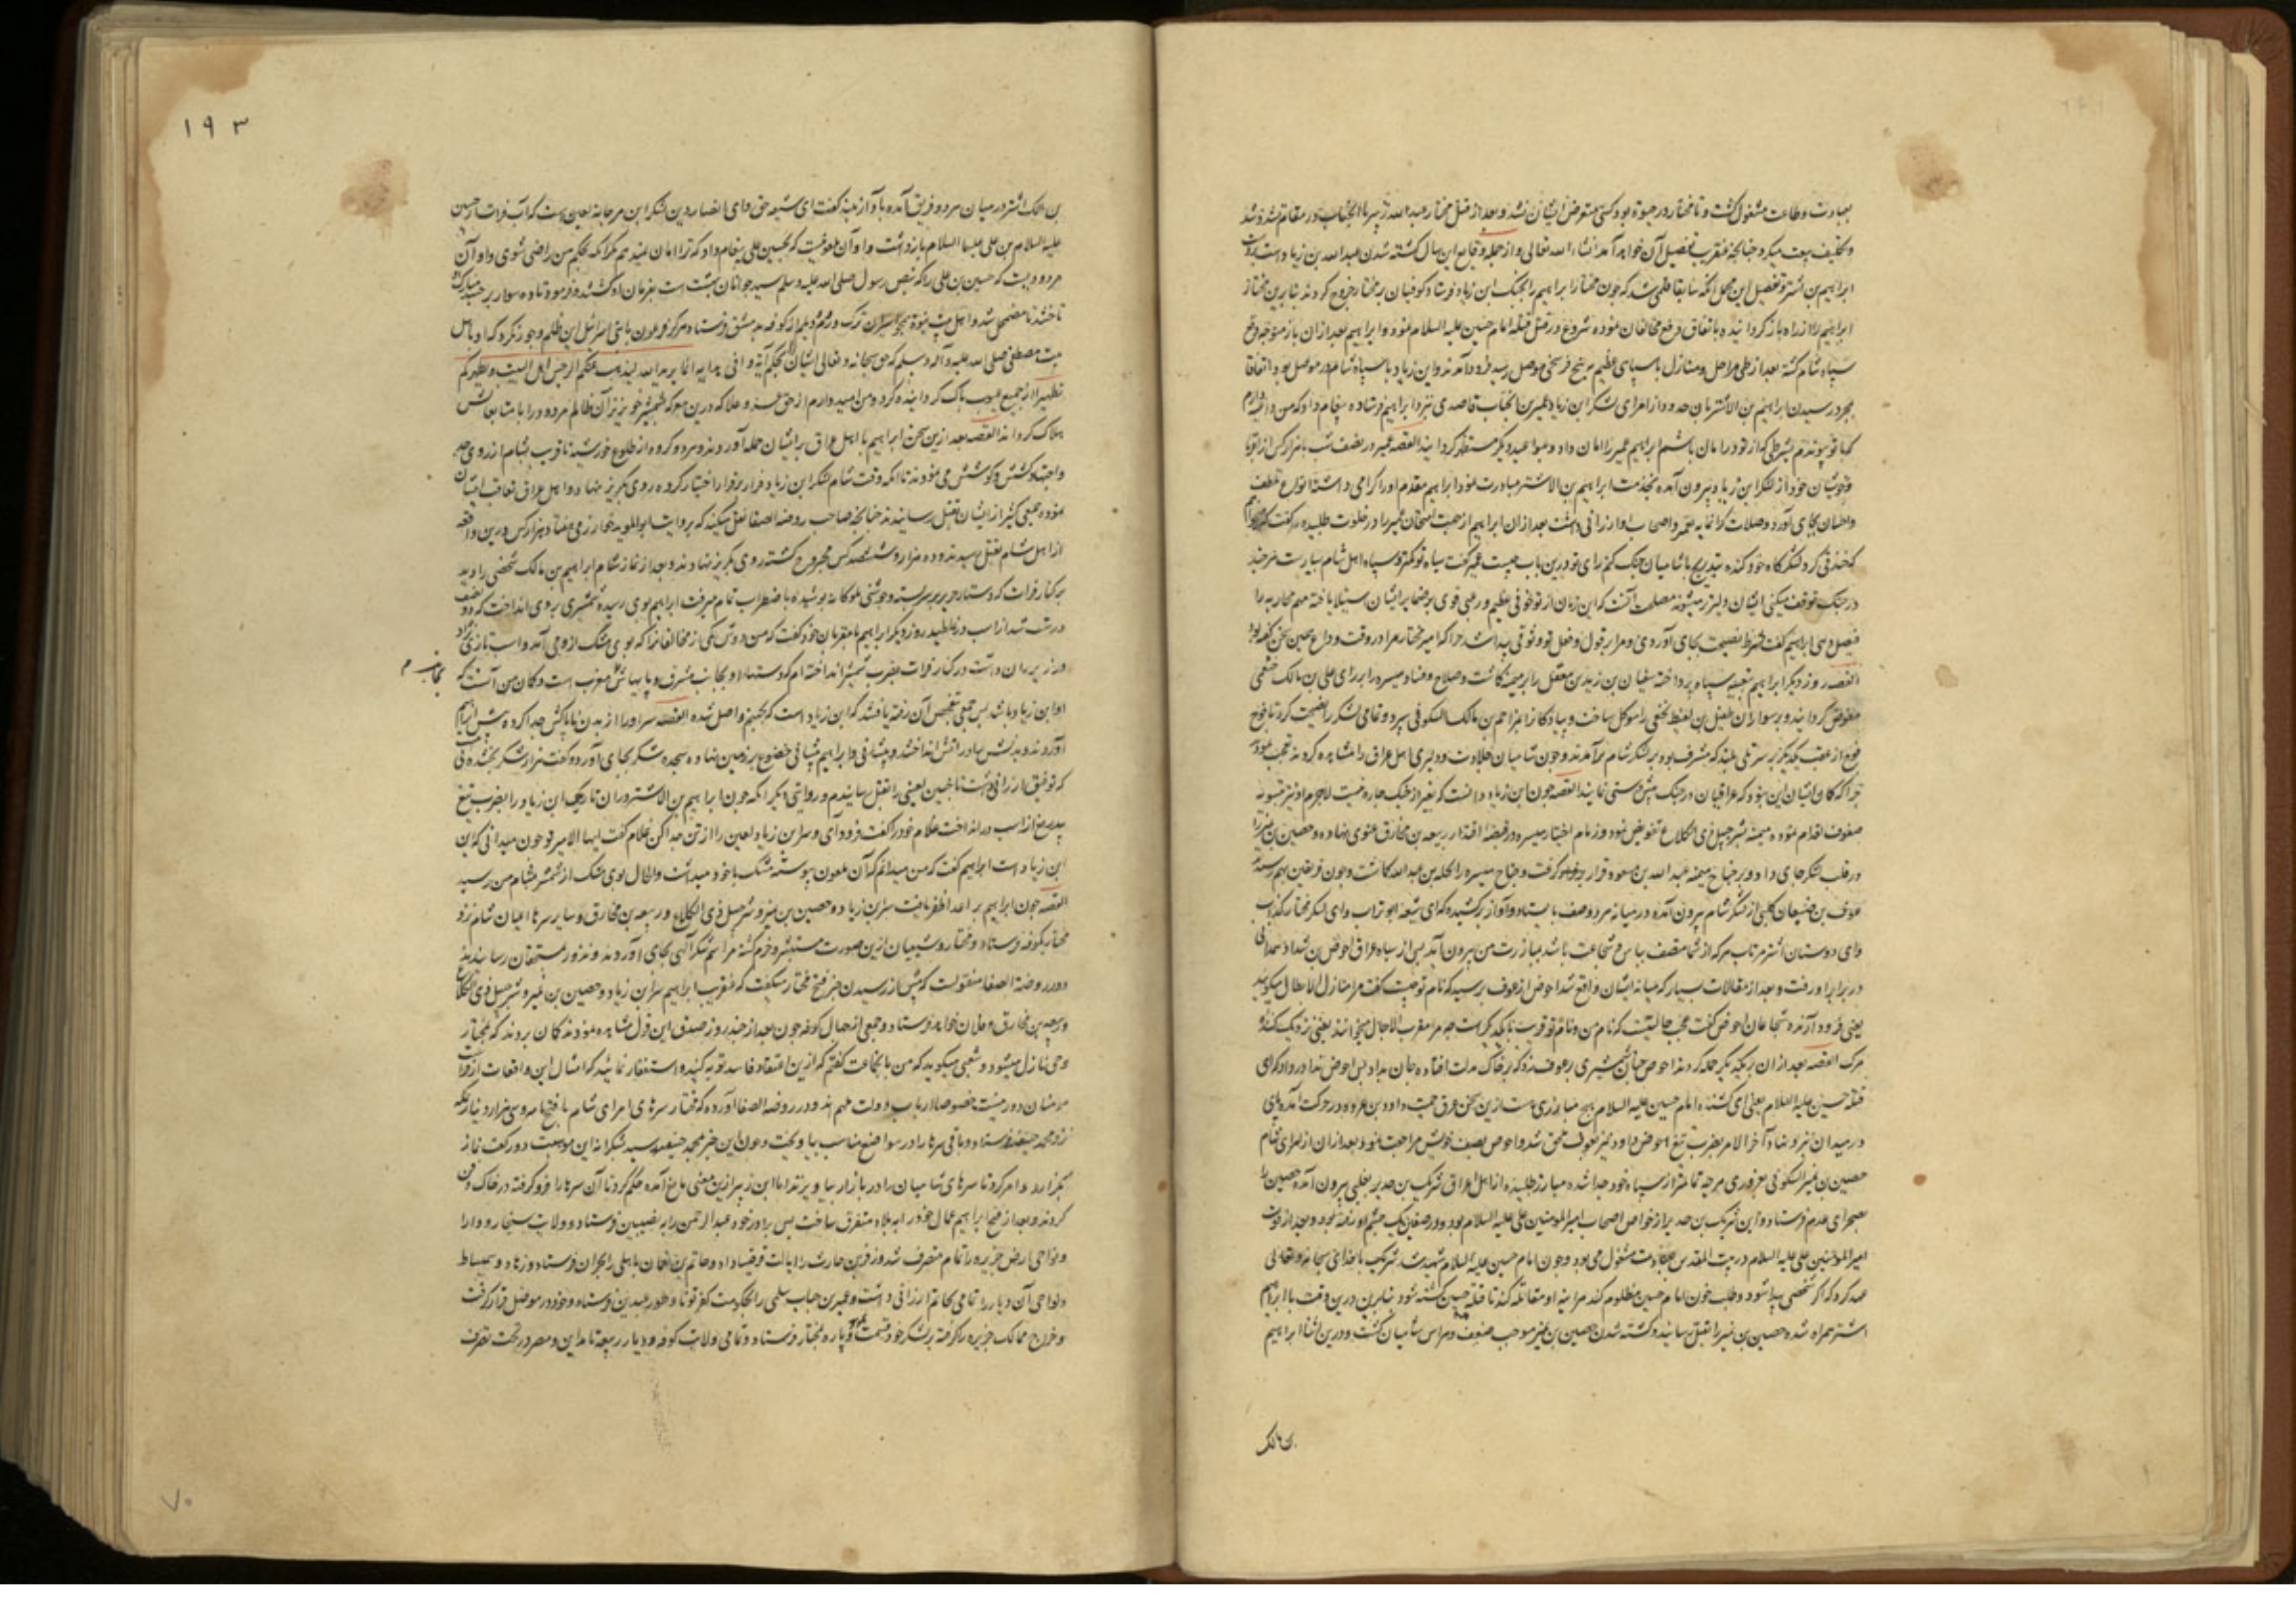 بعبادت و طاعت مشغول گشت و تا مختار در حیوة بود کسی متعرض ایشان نشد و بعد از قتل مختار عبدالله زبیر با آنجناب در مقام تشدد شد
و تکلیف بیعت میکرد چنانچه عنقریب تفصیل آن خواهد آمد انشاء الله تعالی و از جمله وقایع این سال کشته شدن عبدالله بن زیاد است بدست
ابراهیم بن اشتر و تفصیل این مجمل آنکه سابقا قلمی شد که چون مختار ابراهیم را بجنک ابن زیاد فرستاد کوفیان بر مختار خروج کردند بنابرین مختار
ابراهیم را از راه باز گردانیده باتفاق دفع مخالفان نموده شروع در قتل قتله امام حسین علیه السلام نمود و ابراهیم بعد از ان باز متوجه دفع
سپاه شام گشته بعد از طی مراحل و منازل با سپاهی عظیم به پنج فرسخی موصل رسید فرود آمدند و ابن زیاد با سپاه شام در موصل بود اتفاقا
بمجرد رسیدن ابراهیم بن الاشتر بان حدود از امرای لشکر ابن زیاد عمیر بن الحباب قاصدی نزد ابراهیم فرستاده پیغام داد که من داعیه دارم
که با تو پیوندم بشرطی که از تو در امان باشم ابراهیم عمیر را امان داد و بمواعید دیگر مستظهر گردانید القصه عمیر در نصف شب با هزار کس از اقربا
و خویشان خود از لشکر ابن زیاد بیرون آمده بخدمت ابراهیم بن الاشتر مبادرت نمود ابراهیم مقدم او را گرامی داشته انواع تلطف
و احسان بجای آورد و صلات گرانمایه بعمیر و اصحاب او ارزانی داشت بعد از ان ابراهیم از جهت امتحان عمیر را در خلوت طلبیده گفت میخواهم
که خندقی گرد لشکرگاه خود کنده بتدریج با شامیان جنک کنم رای تو درین باب چیست عمیر گفت سپاه تو کمتر و سپاه اهل شام بسیارست هرچند
در جنک توقف میکنی ایشان دلیرتر میشوند مصلحت آنست که این زمان از تو خوفی عظیم و رعبی قوی بر ضمایر ایشان استیلا یافته مهم محاربه را
فیصل دهی ابراهیم گفت شرط نصیحت بجای آوردی و مرا بر قول و فعل تو وثوقی پیدا شد چرا که امیر مختار مرا در وقت وداع همین سخن گفته بود
القصه روز دیگر ابراهیم بتعبیه سپاه پرداخته سفیان بن زید بن معقل را بر میمنه گماشت و صلاح و فساد میسره را برای علی بن مالک خثعمی
مفوض گردانید و بر سواران طفیل بن لقیط نخعی را موکل ساخت و پیادگان را بمزاحم بن مالک السکونی سپرد و تمامی لشکر را نصیحت کرد تا فوج
فوج از عقب یکدیگر بر سر تلی بلند که مشرف بود بر لشکر شام برآمدند و چون شامیان جلادت و دلیری اهل عراق را مشاهده کردند تعجب نمودند
چرا که گمان ایشان این بود که عراقیان در جنک پیش‌دستی نمایند القصه چون ابن زیاد دانست که بغیر از جنک چاره نیست لاجرم او نیز بتسویه
صفوف اقدام نموده میمنه بشرحبیل ذی الکلاع تفویض نمود و زمام اختیار میسره در قبضه اقتدار ربیعه بن مخارق غنوی نهاده و حصین بن نمیر را
در قلب لشکر جای داد و بر جناح میمنه عبدالله بن مسعود قرار گرفت و جناح میسره را بجمله بن عبدالله گماشت و چون فریقین بهم رسیدند
عوف بن ضبعان کلبی از لشکر شام بیرون آمده در میانه هر دو صف بایستاد و آواز برکشیده که ای شیعه ابو تراب و ای لشکر مختار کذاب
وای دوستان اشتر مرتاب هر که از شما متصف بباس و شجاعت باشد بمبارزت من بیرون آید پس از سپاه عراق احوص بن شداد همدانی
در برابر او رفت و بعد از مقالات بسیار که میانه ایشان واقع شد احوص از عوف پرسید که نام تو چیست گفت مرا منازل الابطال میگویند
یعنی فرود آرنده شجاعان احوص گفت عجب حالیست که نام من و نام تو قریب بیکدیگرست چه مرا مقرب الاجال میخوانند یعنی نزدیک کننده
مرک القصه بعد از ان بر یکدیگر حمله کردند احوص چنان شمشیری بر عوف زد که بر خاک مذلت افتاده جان بداد پس احوص ندا درداد که ای
قتله حسین علیه السلام یعنی ای کشنده امام حسین علیه السلام هیچ مبارزی هست ازین سخن عرق حمیت داود بن عروه در حرکت آمده پای
در میدان نبرد نهاد آخر الامر بضرب تیغ احوص داود نیز بعوف ملحق شد و احوص بصف خویش مراجعت نمود بعد از ان از امرای شام
حصین بن نمیر السکونی بغروری هرچه تمامتر از سپاه خود جدا شده مبارز طلبید از اهل عراق شریک بن حدیر تغلبی بیرون آمده حصین را
بصحرای عدم فرستاد و این شریک بن حدیر از خواص اصحاب امیرالمومنین علی علیه السلام بود و در صفین یک چشم او رفته بود و بعد از فوت
امیر المومنین علی علیه السلام در بیت المقدس بعبادت مشغول می‌بود و چون امام حسین علیه السلام شهید شد شریک با خدای سبحانه و تعالی
عهد کرد که اگر شخصی پیدا شود و طلب خون امام حسین مظلوم کند مراینه او مقاتله کند تا قتله حسین کشته شود بنابرین درین وقت با ابراهیم
اشتر همراه شده حصین بن نمیر را بقتل رسانید و کشته شدن حصین بن نمیر موجب ضعف و هراس شامیان گشت و درین اثنا ابراهیم
بن مالک
۱۹۳
بن مالک اشتر در میان هر دو فریق آمده بآواز بلند گفت ای شیعه حق و ای انصار دین لشکر ابن مرجانه لعین است که آب فرات از حسین
علیه السلام بن علی علیهما السلام بازداشت و او آن ملعونیست که بحسین علی پیغام داد که ترا امان نمیدهم مگر آنکه بحکم من راضی شوی و او آن
مردودیست که حسین بن علی را که بنص رسول صلی الله علیه وسلم سید جوانان بهشت است بفرمان او کشتند و فرمود تا ده سوار بر جسد مبارکش
تاختند تا مضمحل شد و اهل بیت نبوة همچو اسیران ترک و روم و دیلم از کوفه به دمشق فرستاد هرگز فرعون با بنی اسرائیل این ظلم و جور نکرد که او باهل
بیت مصطفی صلی الله علیه و آله وسلم که حق سبحانه و تعالی ایشان را بحکم آیه وافی هدایه انما یرید الله لیذهب عنکم الرجس اهل البیت و یطهرکم
تطهیرا از جمیع عیوب پاک گردانیده کرد و من امیدوارم از حق عز و علا که درین معرکه شمشیر خونریز آن ظالم مردود را با متابعانش
هلاک گرداند القصه بعد ازین سخن ابراهیم با اهل عراق بر ایشان حمله آوردند و هر دو گروه از طلوع خورشید تا قریب بشام از روی جد
و اجتهاد کشش و کوشش می‌نمودند تا آنکه وقت شام لشکر ابن زیاد فرار بر قرار اختیار کرده روی بگریز نهاد و اهل عراق تعاقب ایشان
نموده جمعی کثیر از ایشان بقتل رسانیدند چنانچه صاحب روضه الصفا نقل میکند که بروایت ابوالموید خوارزمی هفتاد هزار کس درین واقعه
از اهل شام بقتل رسیدند و ده هزار و ششصد کس مجروح گشته روی بگریز نهادند و بعد از نماز شام ابراهیم بن مالک شخصی را دید
بر کنار فرات که دستار حریر بر سر بسته و جوشنی ملوکانه پوشیده باضطراب تمام میرفت ابراهیم بوی رسیده شمشیری بر وی انداخت که دو نصف
درست شد از اسب درغلطید روز دیگر ابراهیم با مقربان خود گفت که من دوش یکی از مخالفان را که بوی مشک از وی می‌آمد و اسب تازی نژاد
در زیر ران داشت در کنار فرات بضرب شمشیر انداخته‌ام که دستهاء او بجانب مشرق و پایهاش بجانب مغرب است و گمان من آنست که
او ابن زیاد باشد پس جمعی بتفحص آن رفته یافتند که ابن زیاد است که بجهنم واصل شده القصه سر او را از بدن ناپاکش جدا کرده پیش ابراهیم
آوردند و بدنش را در آتش انداختند و ابراهیم پیشانی خضوع بر زمین نهاده سجده شکر بجای آورد و گفت هزار شکر بخشنده
که توفیق ارزانی داشت تا چنین لعینی را بقتل رسانیدم و روایتی دیگر آنکه چون ابراهیم بن الاشتر در آن تاریکی ابن زیاد را بضرب تیغ
بیدریغ از اسب درانداخت غلام خود را گفت فرود آی و سر ابن زیاد لعین را از تن جدا کن غلام گفت ایها الامیر تو چون میدانی که این
ابن زیاد است ابراهیم گفت که من میدانم که آن ملعون پیوسته مشک با خود میداشت و الحال بوی مشک از شمشیر بمشام من رسید
القصه چون ابراهیم بر اعدا ظفر یافت سر ابن زیاد و حصین بن نمیر و شرحبیل ذی الکلاع و ربیعه بن مخارق و سایر سرهاء اعیان شام نزد
مختار بکوفه فرستاد و مختار و شیعیان ازین صورت مستبشر و خرم گشته مراسم شکر الهی بجای آوردند و نذور بمستحقان رسانیدند
و در روضة الصفا منقولست که پیش از رسیدن خبر فتح مختار میگفت که عنقریب ابراهیم سر ابن زیاد و حصین بن نمیر و شرحبیل ذی الکلاع
و ربیعه بن مخارق و فلان خواهد فرستاد و جمعی از جهال کوفه چون بعد از چند روز صدق این قول مشاهده نمودند گمان بردند که بمختار
وحی نازل میشود و شعبی میگوید که من با آنجماعت گفتم که ازین اعتقاد فاسد توبه کنید و استغفار نمائید که امثال این واقعات از فراست
مومنان دور نیست خصوصا ارباب دولت ملهم‌اند و در روضه الصفا آورده که مختار سرهای امرای شام با فتحنامه و سی هزار دینار بمکه
نزد محمد حنفیه فرستاد و باقی سرها را در مواضع مناسب بیاویخت و چون این خبر بمحمد حنفیه رسید بشکرانه این موهبت دو رکعت نماز
بگزارد و امر کرد تا سرهای شامیان را در بازار بیاویزند اما ابن زبیر ازین معنی مانع آمده حکم کرد تا آن سرها را فرو گرفته در خاک دفن
کردند و بعد از فتح ابراهیم عمال خود را به بلاد متفرق ساخت پس برادر خود عبدالرحمن را به نصیبین فرستاد و ولایت سنجار و دارا
و نواحی ارض جزیره را تمام متصرف شد و زفر بن حارث را ایالت قرقیسا داد و حاتم بن نعمان باهلی را بحران فرستاد و رها و سمیساط
و نواحی آن دیار را تمامی بحاتم ارزانی داشت و عمیر بن حباب سلمی را بحکومت کفرتوثا و طور عبدین فرستاد و خود در موصل قرار گرفت
و خراج ممالک جزیره را گرفته بر لشکر خود قسمت نمود و پاره بمختار فرستاد و تمامی ولایت کوفه و دیار ربیعه تا مداین و مصر در تحت تصرف
بجانب م
۷۰